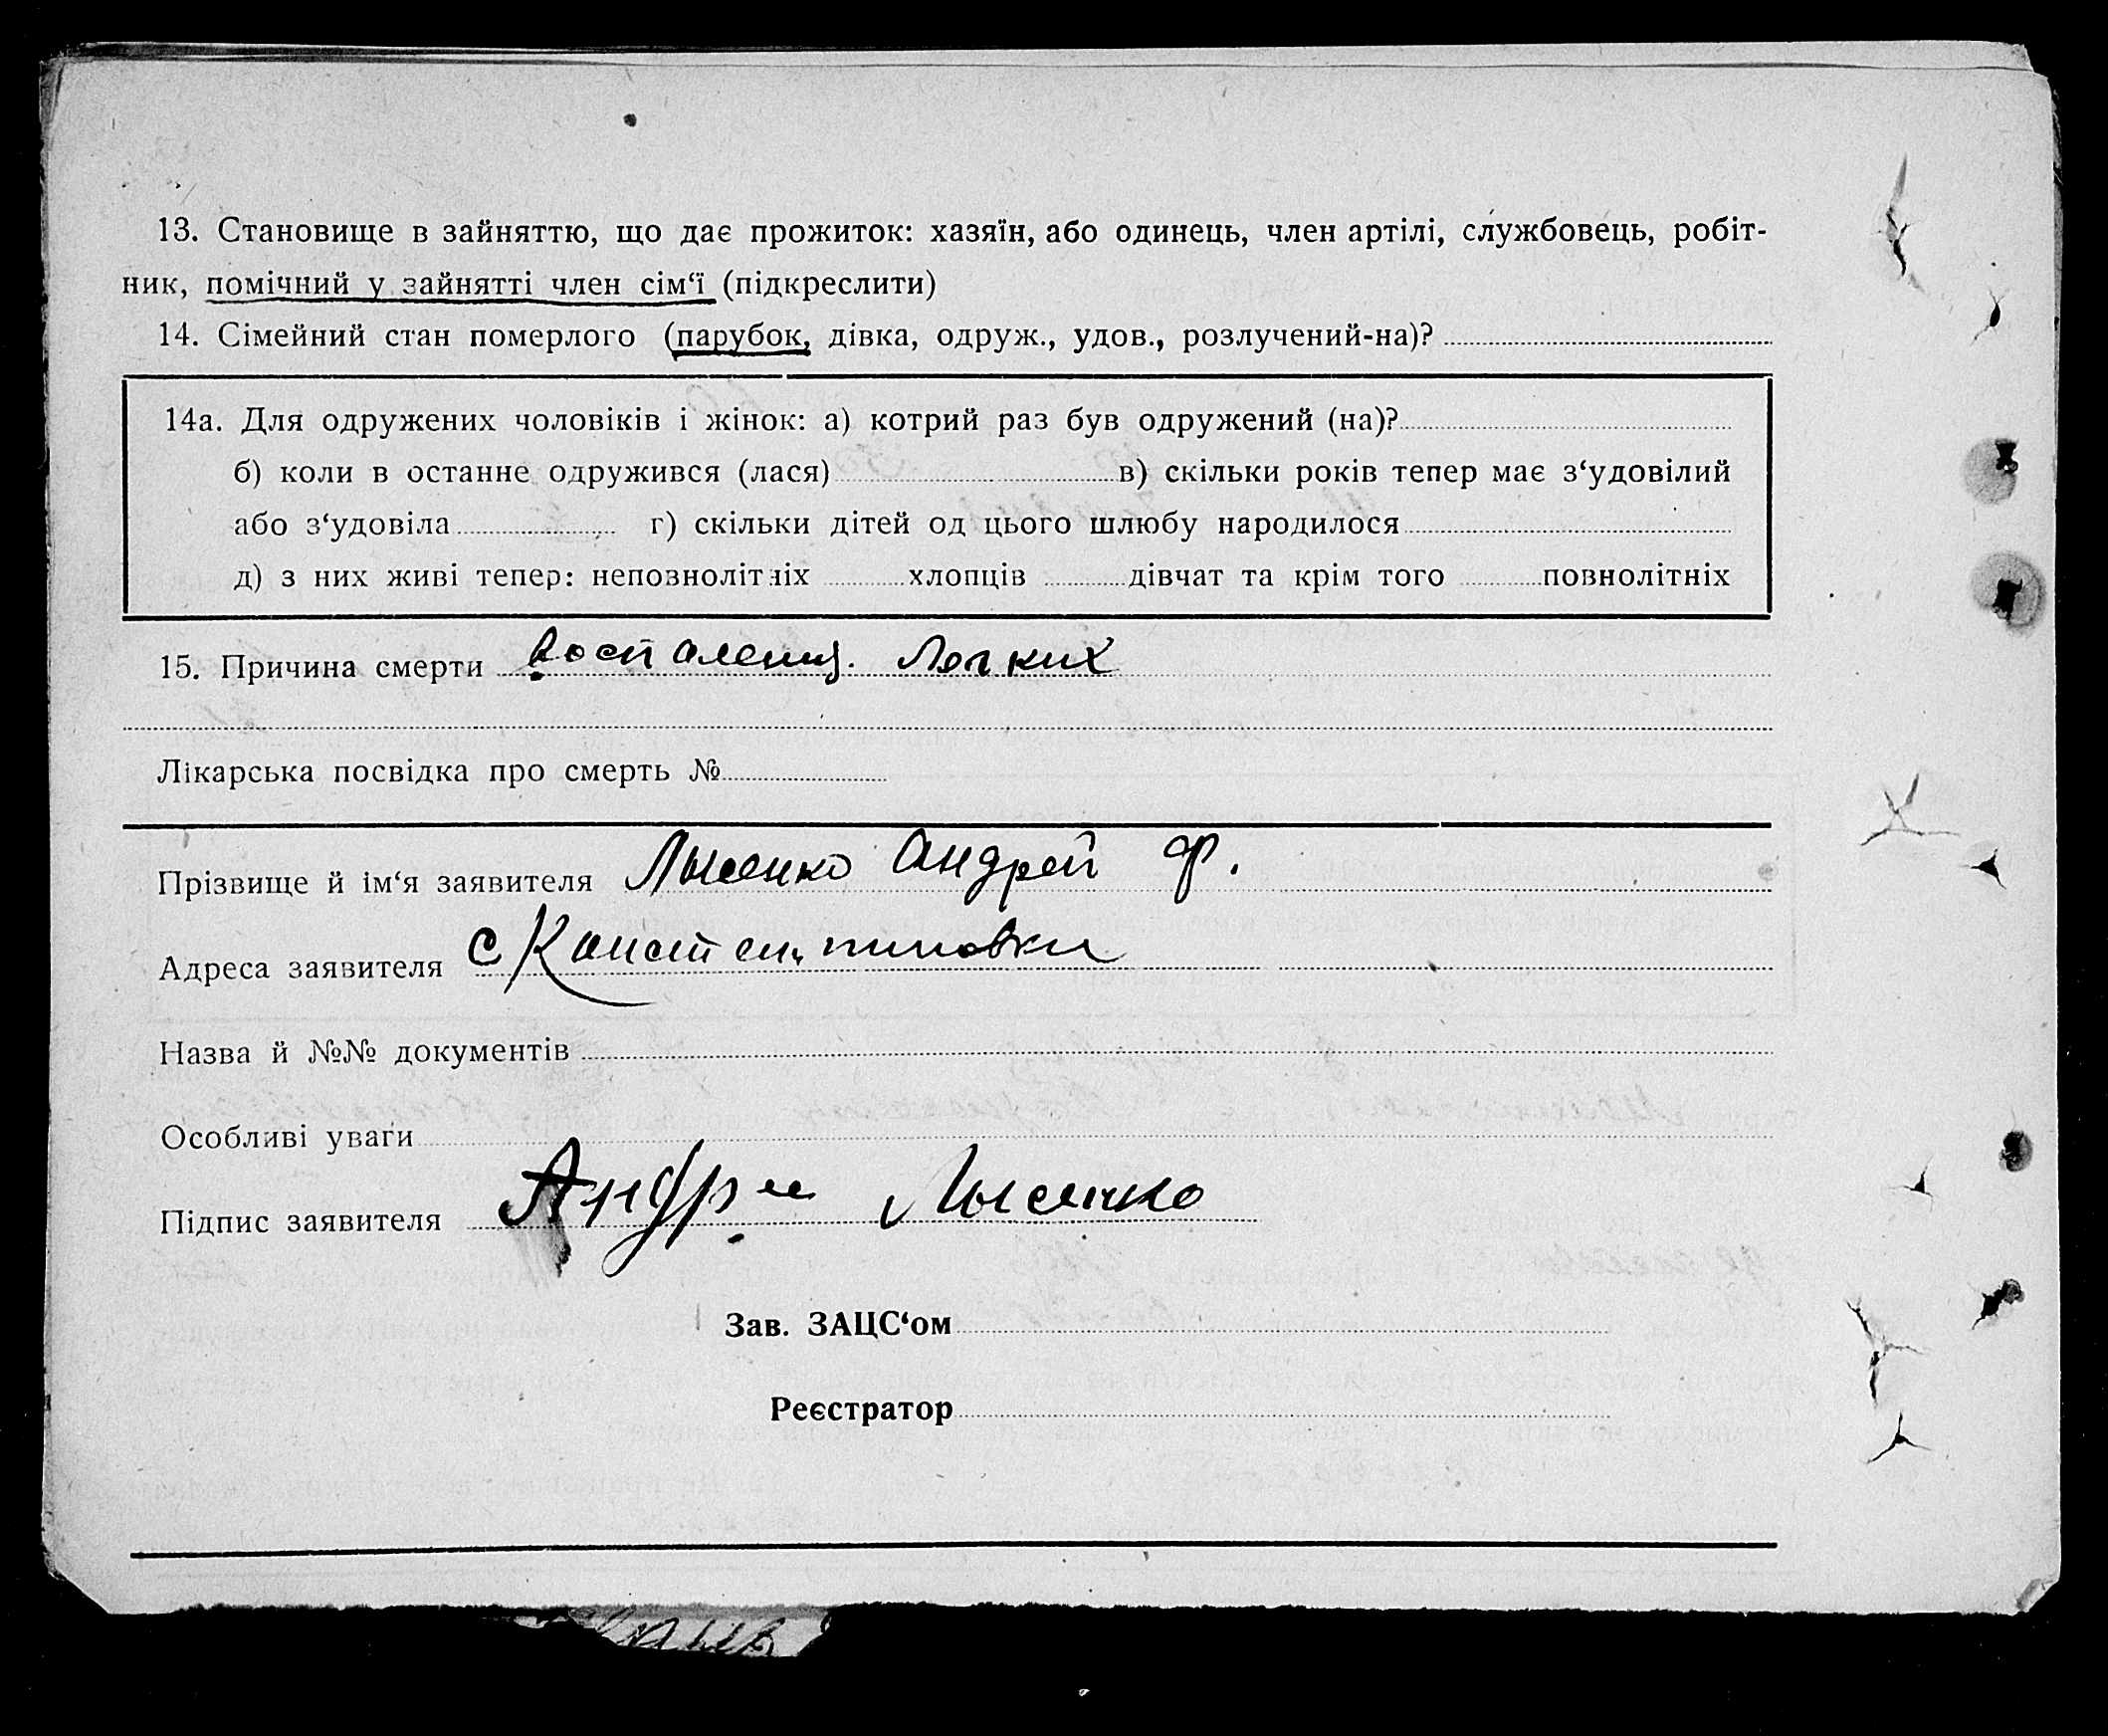 13. Становище в зайняттю, що дає прожиток: хазяїн, або одинець, член артілі, службовець, робіт-
ник, помічний у зайнятті член сім‘ї (підкреслити)
14. Сімейний стан померлого (парубок, дівка, одруж., удов., розлучений-на)?
14а. Для одружених чоловіків і жінок: а) котрий раз був одружений (на)?
б) коли в останне одружився (лася) в) скільки років тепер має з‘удовілий
або з‘удовіла г) скільки дітей од цього шлюбу народилося
д) з них живі тепер: неповнолітніх хлопців дівчат та крім того повнолітніх
15. Причина смерти воспаления Легких
Лікарська посвідка про смерть №
Прізвище й ім‘я заявителя Лысенко Андрей Ф.
Адреса заявителя с Константиновки
Назва й №№ документів
Особливі уваги
Підпис заявителя Андрии Лысенко
Зав. ЗАЦС‘ом
Реєстратор